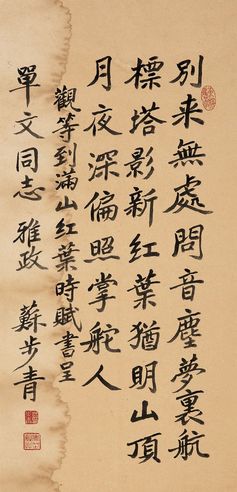 別来無處問音塵夢裏航
標塔影新紅葉猶明山頂
月夜深偏照掌舵人
觀等到滿山红葉時賦書呈
單文同志雅政 蘇步青